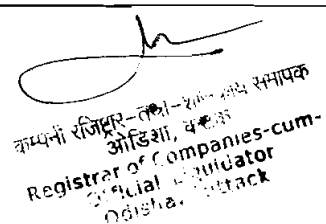 कम्पनी रजिस्ट्रार-तथा- समापक
ओडिशा, कटक
Registrar of Companies-cum-
Official Liquidator
Odisha, Cuttack